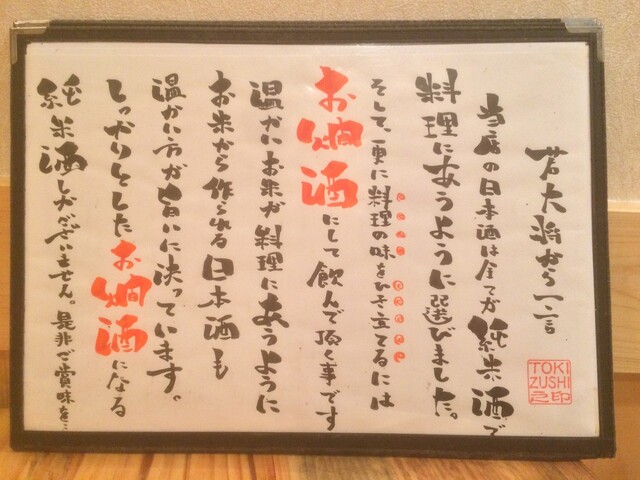 若大将から一言
当店の日本酒は全てが純米酒で
料理にあうように選びました。
そして、更に料理の味をひき立てるには
お燗酒にして飲んで頂く事です
温かいお米が料理にあうように
お米から作られる日本酒も
温かい方が旨いに決っています。
しっかりとしたお燗酒になる
純米酒しかございません。是非ご賞味を…
TOKI
ZUSHI
之印